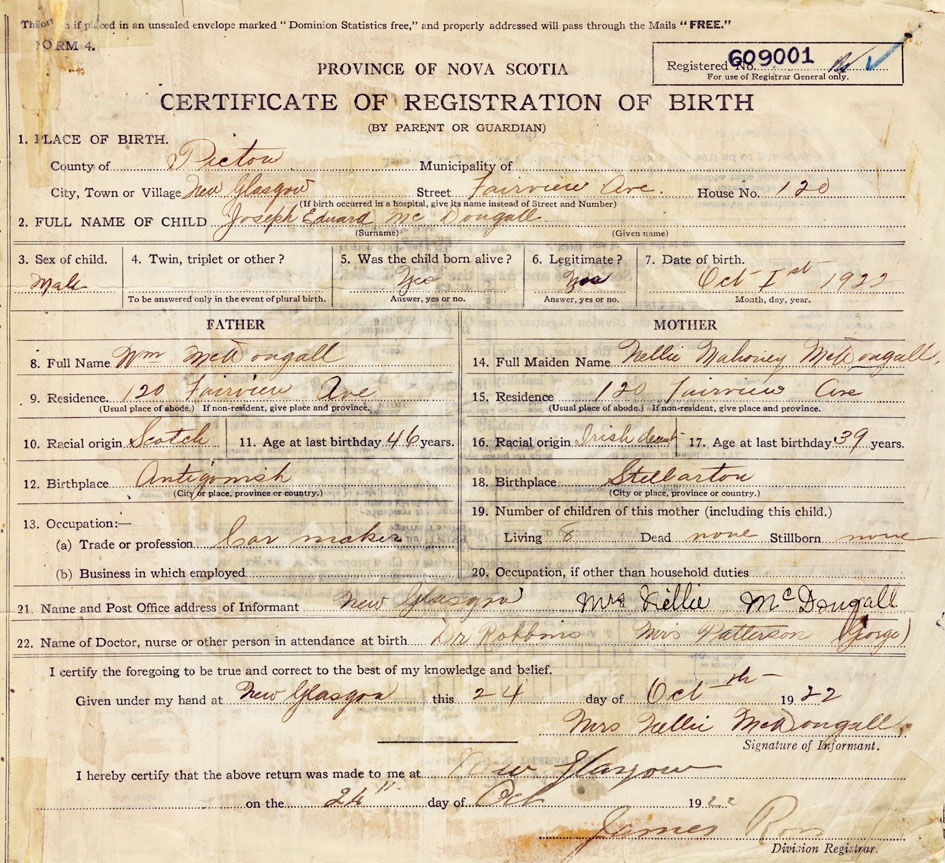 This form if placed in an unsealed envelope marked "Dominion Statistics free," and properly addressed will pass through the Mails "FREE."
FORM 4.
Registered No. 609001
For use of Registrar General only.
PROVINCE OF NOVA SCOTIA
CERTIFICATE OF REGISTRATION OF BIRTH
(BY PARENT OR GUARDIAN)
1. PLACE OF BIRTH.
County of Pictou Municipality of
City, Town or Village New Glasgow Street Fairview Ave. House No. 120
(If birth occurred in a hospital, give its name instead of Street and Number)
2. FULL NAME OF CHILD Joseph Eduard Mc Dougall
(Surname) (Given name)
3. Sex of child. 4. Twin, triplet or other? 5. Was the child born alive? 6. Legitimate? 7. Date of birth.
Male Yes Yes Oct 1st 1922
To be answered only in the event of plural birth. Answer, yes or no. Answer, yes or no. Month, day, year.
FATHER MOTHER
8. Full Name Wm McDougall 14. Full Maiden Name Nellie Mahoney McDougall.
9. Residence. 120 Fairview Ave 15. Residence 120 Fairview Ave
(Usual place of abode.) If non-resident, give place and province. (Usual place of abode.) If non-resident, give place and province.
10. Racial origin Scotch 11. Age at last birthday 46 years. 16. Racial origin Irish decent 17. Age at last birthday 39 years.
12. Birthplace Antigonish 18. Birthplace Stellarton
(City or place, province or country.) (City or place, province or country.)
13. Occupation:— 19. Number of children of this mother (including this child.)
(a) Trade or profession Car maker Living 8 Dead none Stillborn none
(b) Business in which employed 20. Occupation, if other than household duties
21. Name and Post Office address of Informant New Glasgow Mrs Nellie McDougall
22. Name of Doctor, nurse or other person in attendance at birth Dr Robbins Mrs Patterson (Gorge)
I certify the foregoing to be true and correct to the best of my knowledge and belief.
Given under my hand at New Glasgow this 24 day of Oct th 1922
Mrs Nellie McDougall.
Signature of Informant.
I hereby certify that the above return was made to me at New Glasgow
on the 24" day of Oct 1922
James
Division Registrar.